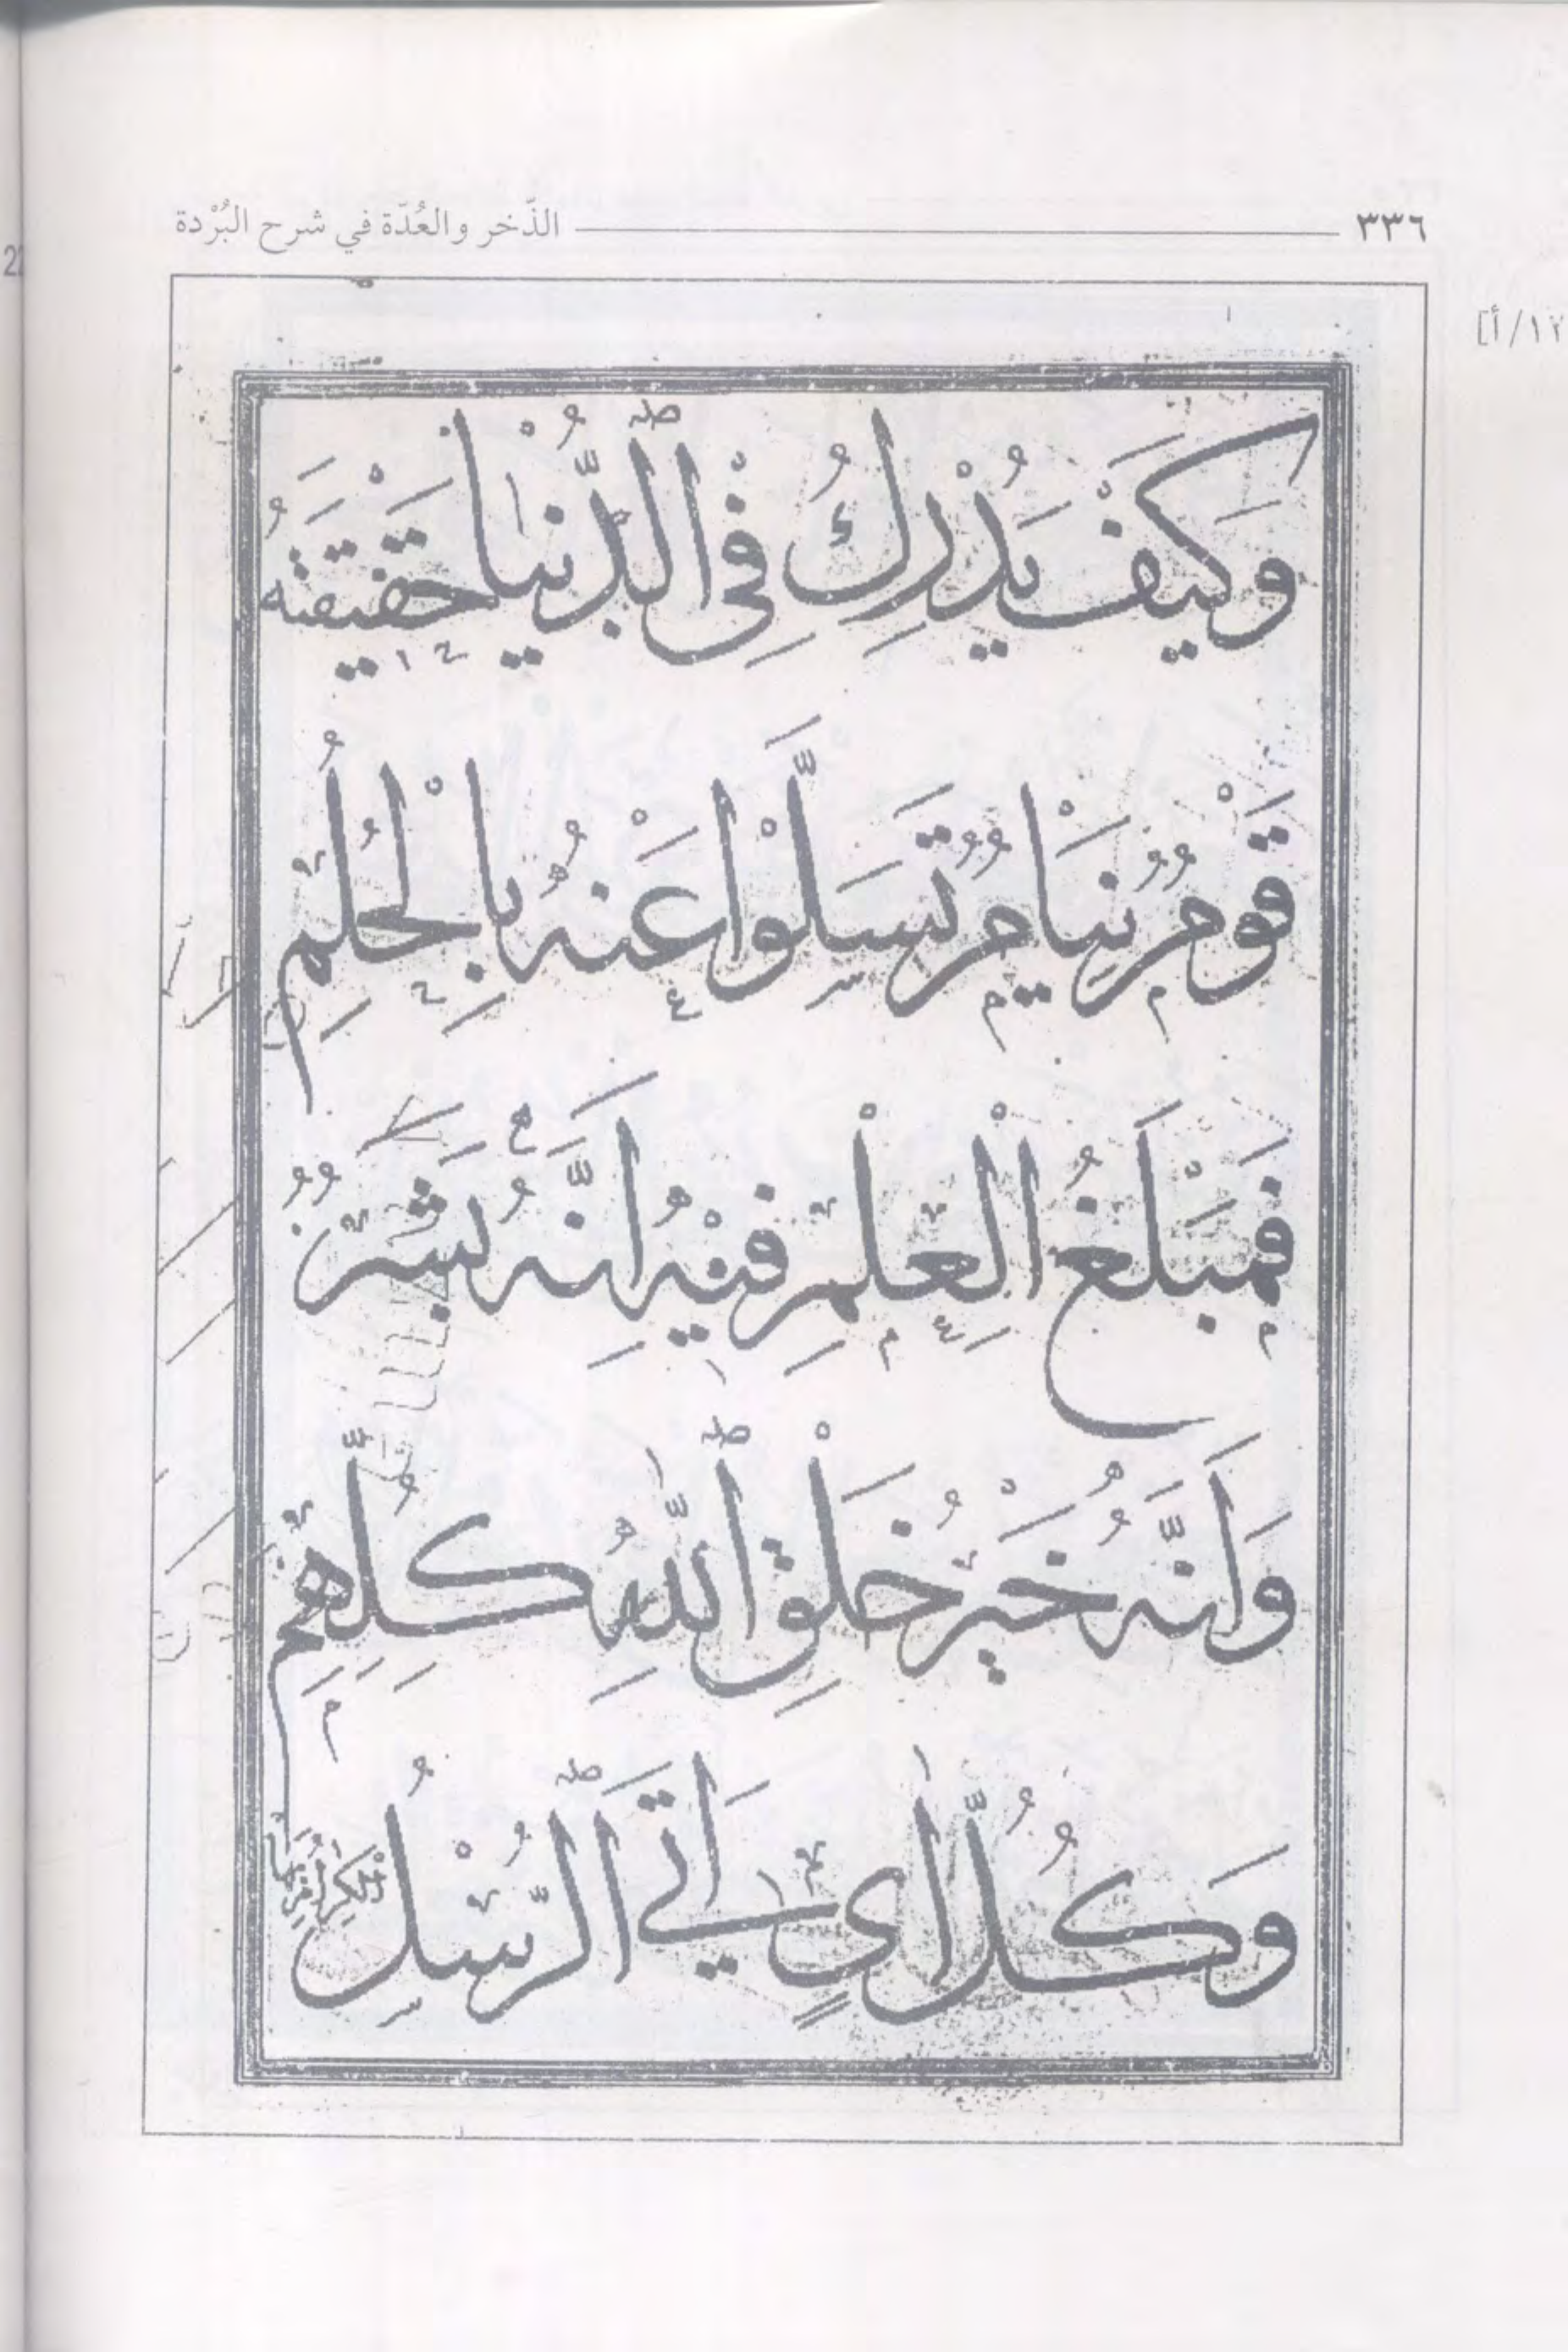 ٣٣٦ الذّخر والعُدّة في شرح البُرْدة
١٢/أ]
وَكَيْفَ يُدْرِكُ فِى ٱلدُّنْيَا حَقِيْقَتَهُ
قَوْمٌ نِيَامٌ تَسَلَّوْا عَنْهُ بِالْحُلُمِ
فَمَبْلَغُ الْعِلْمِ فِيْهِ اَنَّهُ بَشَرٌ
وَاَنَّهُ خَيْرُ خَلْقِ ٱللّٰهِ كُلِّهِمِ
وَكُلُّ اٰىٍ اَتَى ٱلرُّسْلُ الْكِرَامُ